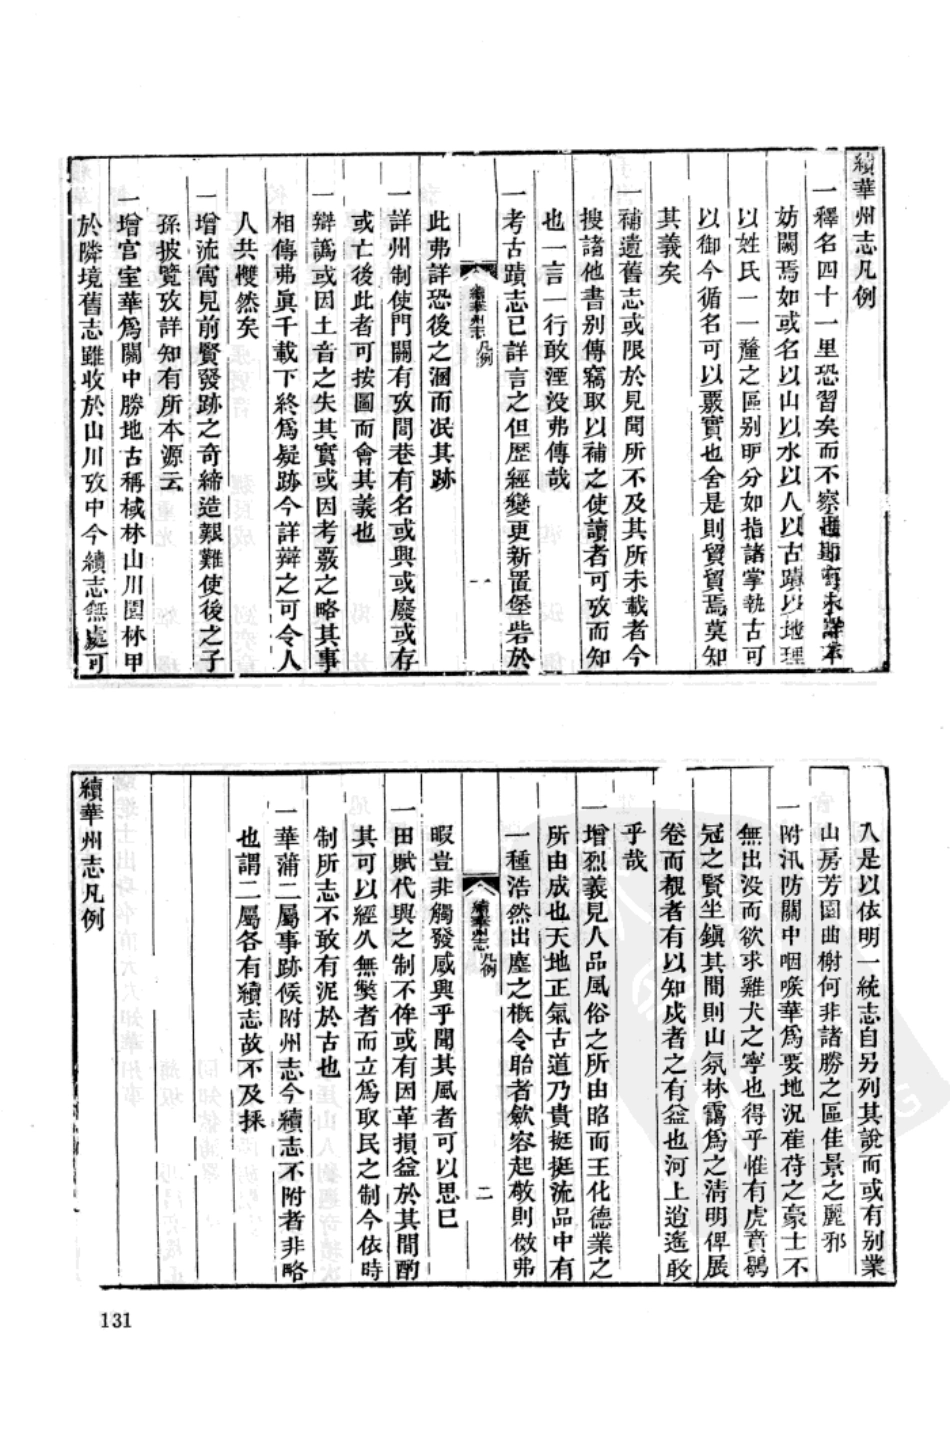 續華州志凡例
一釋名四十一里恐習矣而不察
妨闕焉如或名以山以水以人以古蹟以地理
以姓氏一一釐之區别昈分如指諸掌執古可
以御今循名可以覈實也舍是則貿貿焉莫知
其義矣
一補遺舊志或限於見聞所不及其所未載者今
搜諸他書别傳竊取以補之使讀者可攷而知
也一言一行敢湮没弗傳哉
一考古蹟志已詳言之但歴經變更新置堡砦於
續華州志 凡例 一
此弗詳恐後之溷而泯其跡
一詳州制使門關有攷閭巷有名或興或廢或存
或亡後此者可按圖而會其義也
一辯譌或因土音之失其實或因考覈之略其事
相傳弗眞千載下終爲疑跡今詳辯之可令人
人共戄然矣
一增流寓見前賢發跡之奇締造艱難使後之子
孫披覽攷詳知有所本源云
一增宫室華爲關中勝地古稱棫林山川園林甲
於隣境舊志雖收於山川攷中今續志無處可
入是以依明一統志自另列其說而或有别業
山房芳園曲榭何非諸勝之區佳景之麗邪
一附汛防關中咽喉華爲要地況萑苻之豪士不
無出没而欲求雞犬之寧也得乎惟有虎賁鶡
冠之賢坐鎮其間則山氛林靄爲之清明俾展
卷而覩者有以知戍者之有益也河上逍遙敢
乎哉
一增烈義見人品風俗之所由昭而王化德業之
所由成也天地正氣古道乃貴挺挺流品中有
一種浩然出塵之概令眙者歛容起敬則傚弗
續華州志 凡例 二
暇豈非觸發感興乎聞其風者可以思已
一田賦代輿之制不侔或有因革損益於其間酌
其可以經久無獘者而立爲取民之制今依時
制所志不敢有泥於古也
一華蒲二屬事跡俟附州志今續志不附者非略
也謂二屬各有續志故不及採
續華州志凡例
131